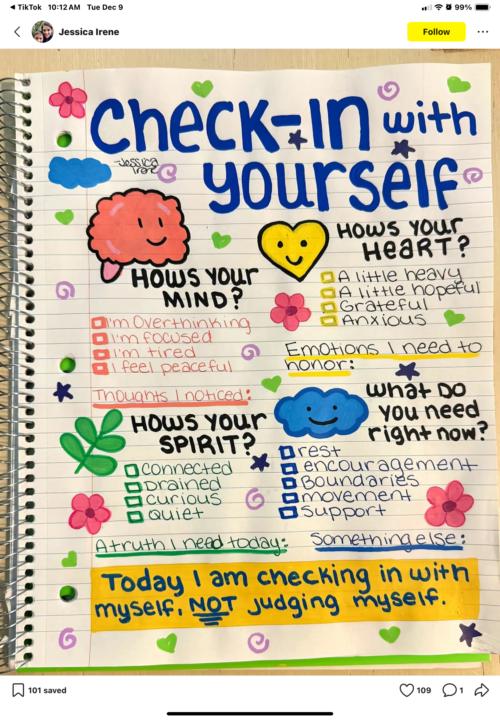 TikTok 10:12 AM Tue Dec 9 99%
Jessica Irene
Follow
Check-In with
yourself
Jessica
Irene
Hows your
Mind?
I'm Overthinking
I'm focused
I'm tired
I feel peaceful
Thoughts I noticed:
Hows your
Heart?
A little heavy
A little hopeful
Grateful
Anxious
Emotions I need to
honor:
Hows your
Spirit?
Connected
Drained
curious
quiet
A truth I need today:
What do
you need
right now?
rest
encouragement
Boundaries
movement
Support
Something else:
Today I am checking in with
myself, NOT judging myself.
101 saved
109
1